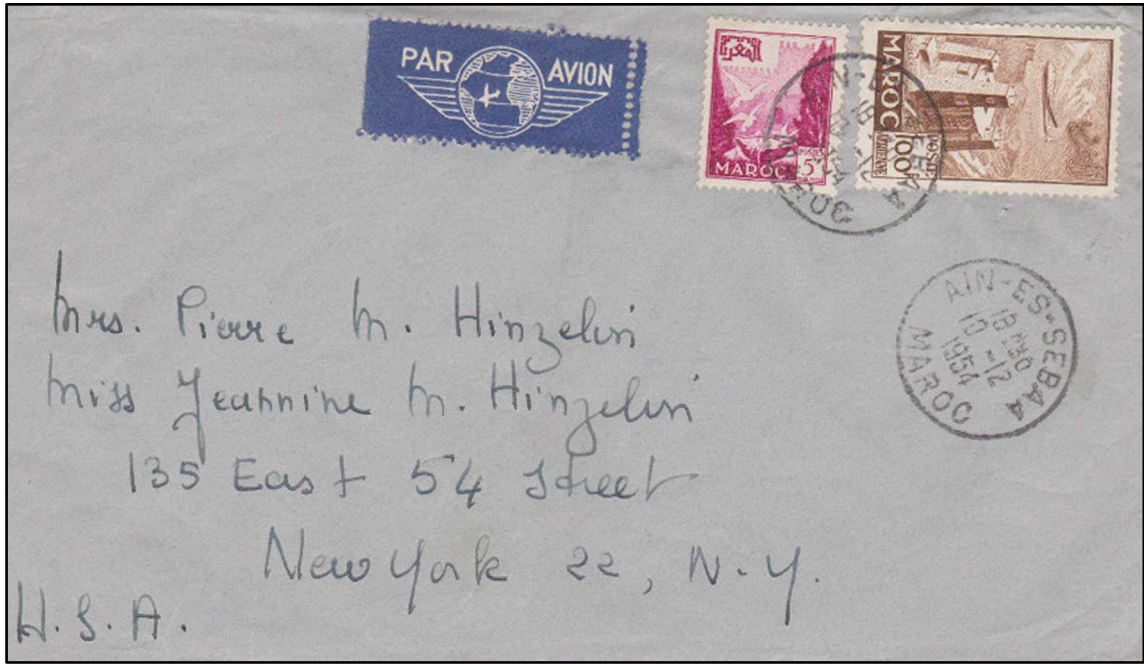 PAR AVION
المغرب
MAROC
POSTES
5F
MAROC
POSTE
100F
AIN-ES-SEBAA
18 H30
10 -12
1954
MAROC
Mrs. Pierre M. Hinzelin
Miss Jeannine M. Hinzelin
135 East 54 Street
New York 22, N.Y.
U.S.A.